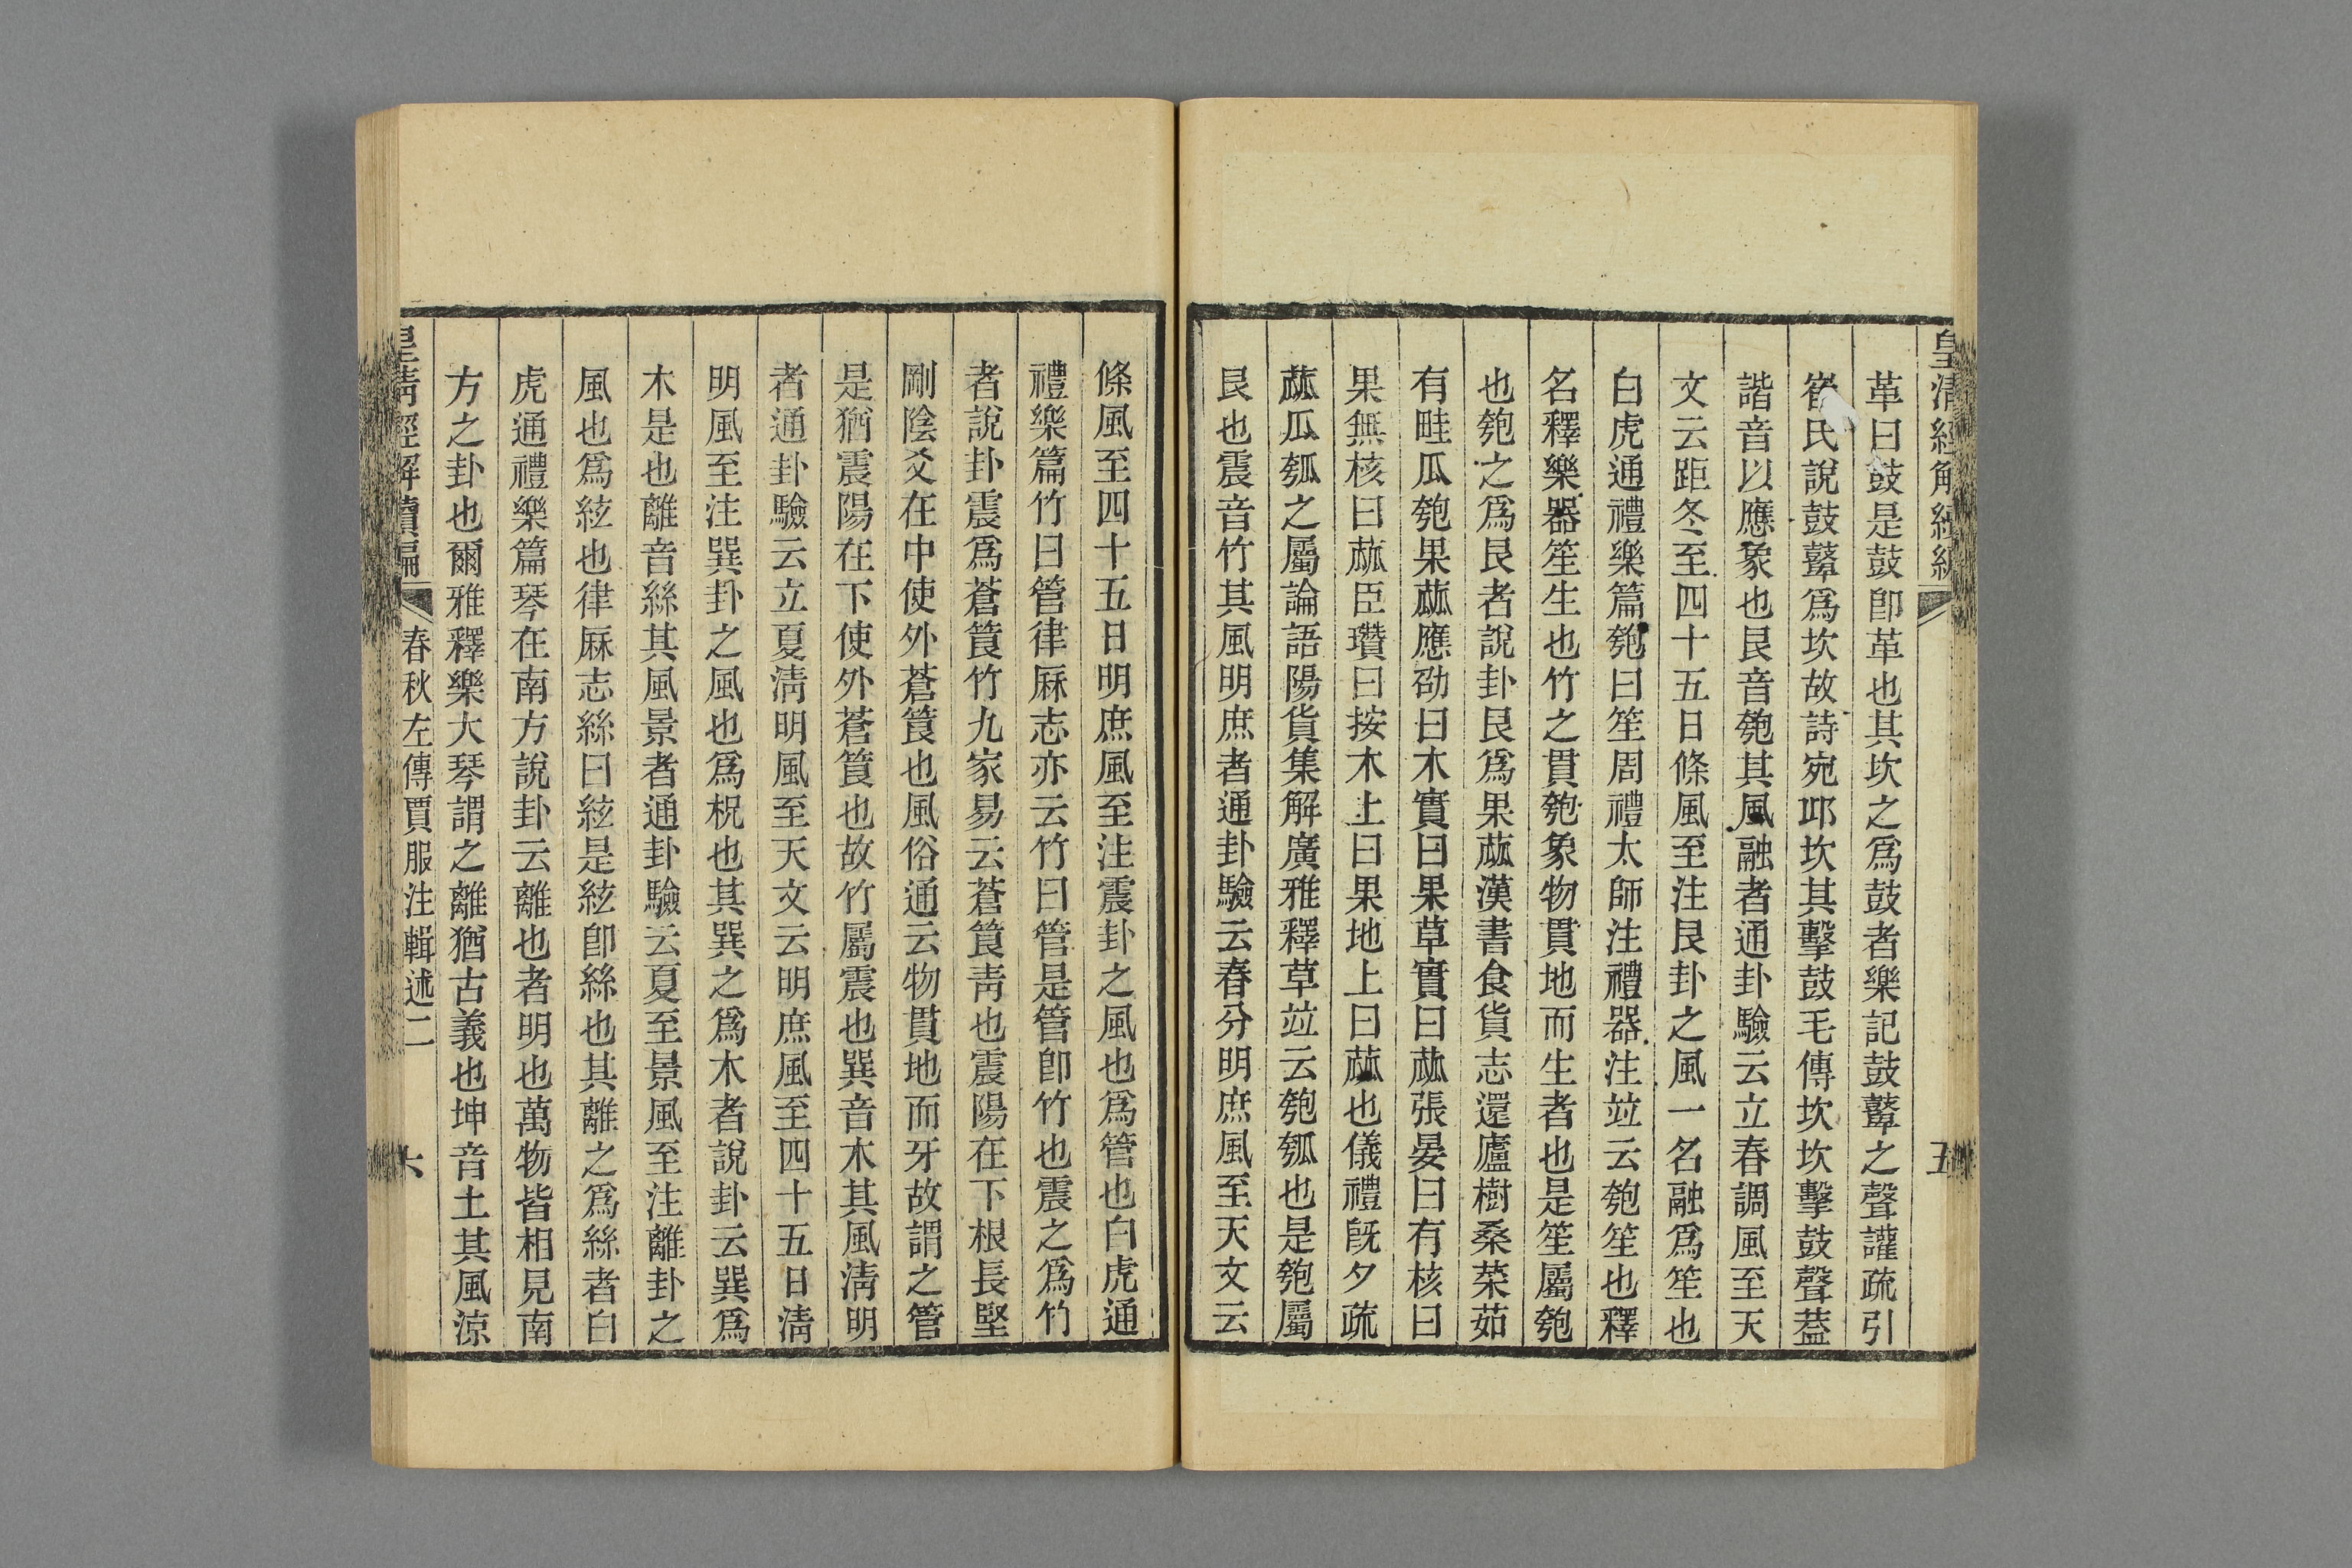 皇清經解續編
五
革曰鼓是鼓卽革也其坎之爲鼓者樂記鼓鼙之聲讙疏引
崔氏說鼓鼙爲坎故詩宛邱坎其擊鼓毛傳坎坎擊鼓聲葢
諧音以應象也艮音匏其風融者通卦驗云立春調風至天
文云距冬至四十五日條風至注艮卦之風一名融爲笙也
白虎通禮樂篇匏曰笙周禮太師注禮器注竝云匏笙也釋
名釋樂器笙生也竹之貫匏象物貫地而生者也是笙屬匏
也匏之爲艮者說卦艮爲果蓏漢書食貨志還廬樹桑菜茹
有畦瓜匏果蓏應劭曰木實曰果草實曰蓏張晏曰有核曰
果無核曰蓏臣瓚曰按木上曰果地上曰蓏也儀禮旣夕疏
蓏瓜瓠之屬論語陽貨集解廣雅釋草竝云匏瓠也是匏屬
艮也震音竹其風明庶者通卦驗云春分明庶風至天文云
條風至四十五日明庶風至注震卦之風也爲管也白虎通
禮樂篇竹曰管律厤志亦云竹曰管是管卽竹也震之爲竹
者說卦震爲蒼筤竹九家易云蒼筤靑也震陽在下根長堅
剛陰爻在中使外蒼筤也風俗通云物貫地而牙故謂之管
是猶震陽在下使外蒼筤也故竹屬震也巽音木其風淸明
者通卦驗云立夏淸明風至天文云明庶風至四十五日淸
明風至注巽卦之風也爲柷也其巽之爲木者說卦云巽爲
木是也離音絲其風景者通卦驗云夏至景風至注離卦之
風也爲絃也律厤志絲曰絃是絃卽絲也其離之爲絲者白
虎通禮樂篇琴在南方說卦云離也者明也萬物皆相見南
方之卦也爾雅釋樂大琴謂之離猶古義也坤音土其風涼
皇淸經解續編
春秋左傳賈服注輯述二
六